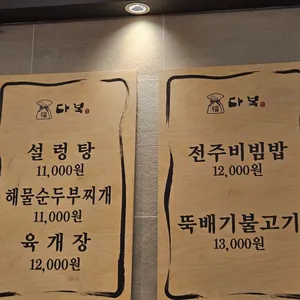 다복
설렁탕
11,000원
해물순두부찌개
11,000원
육개장
12,000원
다복
전주비빔밥
12,000원
뚝배기불고기
13,000원